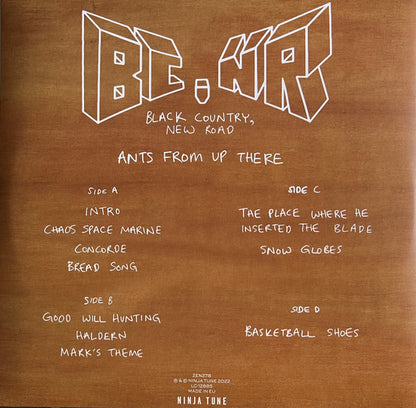 BC,NR
BLACK COUNTRY,
NEW ROAD
ANTS FROM UP THERE
SIDE A
INTRO
CHAOS SPACE MARINE
CONCORDE
BREAD SONG
SIDE B
GOOD WILL HUNTING
HALDERN
MARK'S THEME
SIDE C
THE PLACE WHERE HE
INSERTED THE BLADE
SNOW GLOBES
SIDE D
BASKETBALL SHOES
ZEN278
℗ & © NINJA TUNE 2022
LC-12885
MADE IN EU
NINJA TUNE